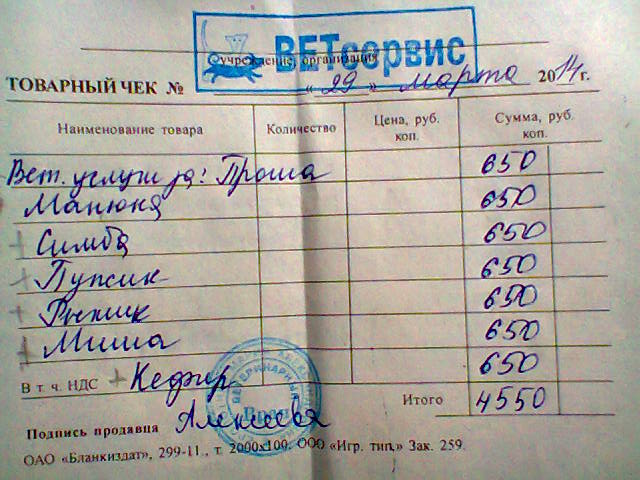 ВЕТсервис
учреждение, организация
ТОВАРНЫЙ ЧЕК № « 29 » марта 2014 г.
Наименование товара Количество Цена, руб. коп. Сумма, руб. коп.
Вет. услуги за: Проша 650
Манюня 650
+ Симба 650
+ Пупсик 650
+ Рыжик 650
+ Миша 650
В т. ч. НДС + Кефир 650
Итого 4550
Подпись продавца Алексеева
ОАО «Бланкиздат», 299-11., т. 2000x100. ООО «Игр. тип.» Зак. 259.
ВЕТЕРИНАРНЫЙ
Врач